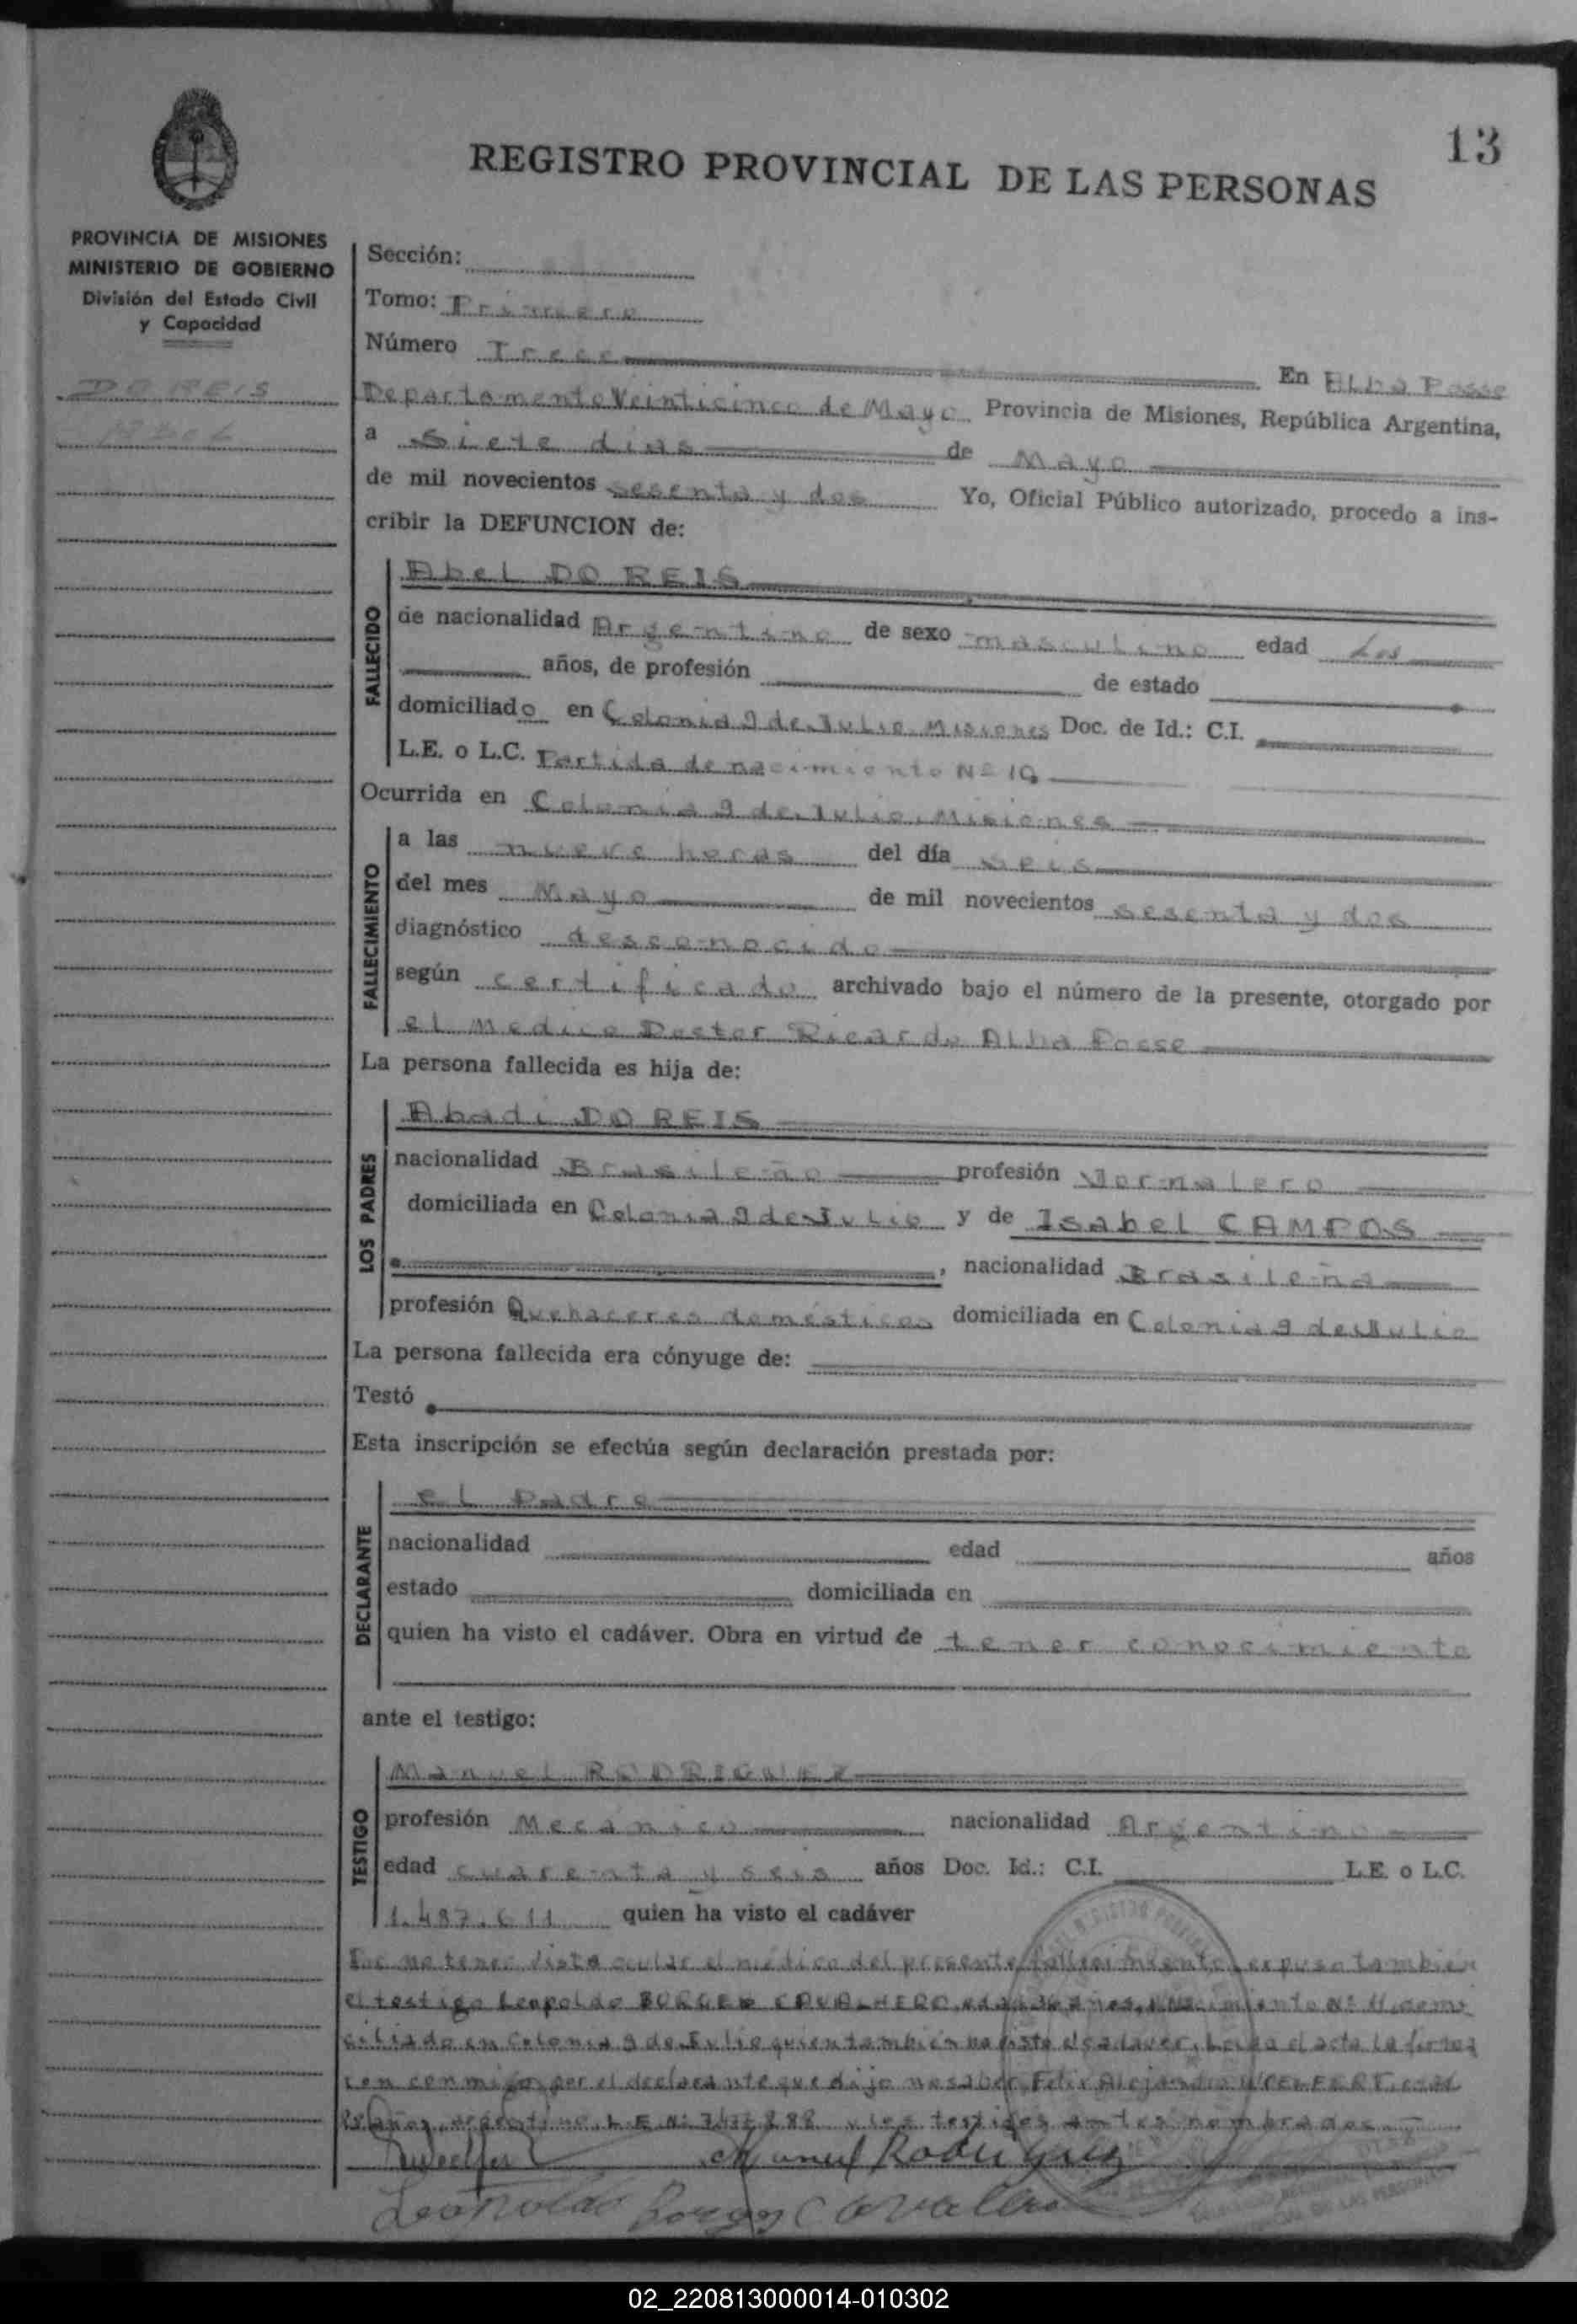 13
REGISTRO PROVINCIAL DE LAS PERSONAS
PROVINCIA DE MISIONES
MINISTERIO DE GOBIERNO
División del Estado Civil
y Capacidad
DO REIS
Abel
Sección:
Tomo: Primero
Número Trece En Alba Posse
Departamento Veinticinco de Mayo Provincia de Misiones, República Argentina,
a Siete días de Mayo
de mil novecientos sesenta y dos Yo, Oficial Público autorizado, procedo a ins-
cribir la DEFUNCION de:
FALLECIDO
Abel DO REIS
de nacionalidad Argentino de sexo masculino edad
años, de profesión de estado
domiciliado en Colonia 9 de Julio, Misiones Doc. de Id.: C.I.
L.E. o L.C. Partida de nacimiento Nº 19
Ocurrida en Colonia 9 de Julio, Misiones
FALLECIMIENTO
a las nueve horas del día seis
del mes Mayo de mil novecientos sesenta y dos
diagnóstico desconocido
según certificado archivado bajo el número de la presente, otorgado por
el Medico Doctor Ricardo Alba Posse
La persona fallecida es hija de:
LOS PADRES
Abadi DO REIS
nacionalidad Brasileño profesión Jornalero
domiciliada en Colonia 9 de Julio y de Isabel CAMPOS
, nacionalidad Brasileña
profesión Quehaceres domésticos domiciliada en Colonia 9 de Julio
La persona fallecida era cónyuge de:
Testó
Esta inscripción se efectúa según declaración prestada por:
DECLARANTE
el Padre
nacionalidad edad años
estado domiciliada en
quien ha visto el cadáver. Obra en virtud de tener conocimiento
ante el testigo:
TESTIGO
Manuel RODRIGUEZ
profesión Mecánico nacionalidad Argentino
edad cuarenta y seis años Doc. Id.: C.I. L.E. o L.C.
1.487.611 quien ha visto el cadáver
Por no tener vista ocular el médico del presente fallecimiento, expuso tambien
el testigo Leopoldo BORGES CAVALHERO edad 36 años, Nacimiento Nº 11, domi
ciliado en Colonia 9 de Julio quien también ha visto el cadaver. Leida el acta la firman
con conmigo, por el declarante que dijo no saber, Felix Alejandro edad
años, argentino, L.E. Nº y los testigos antes nombrados.
Manuel Rodriguez
Leopoldo Borges Cavallero
02_220813000014-010302